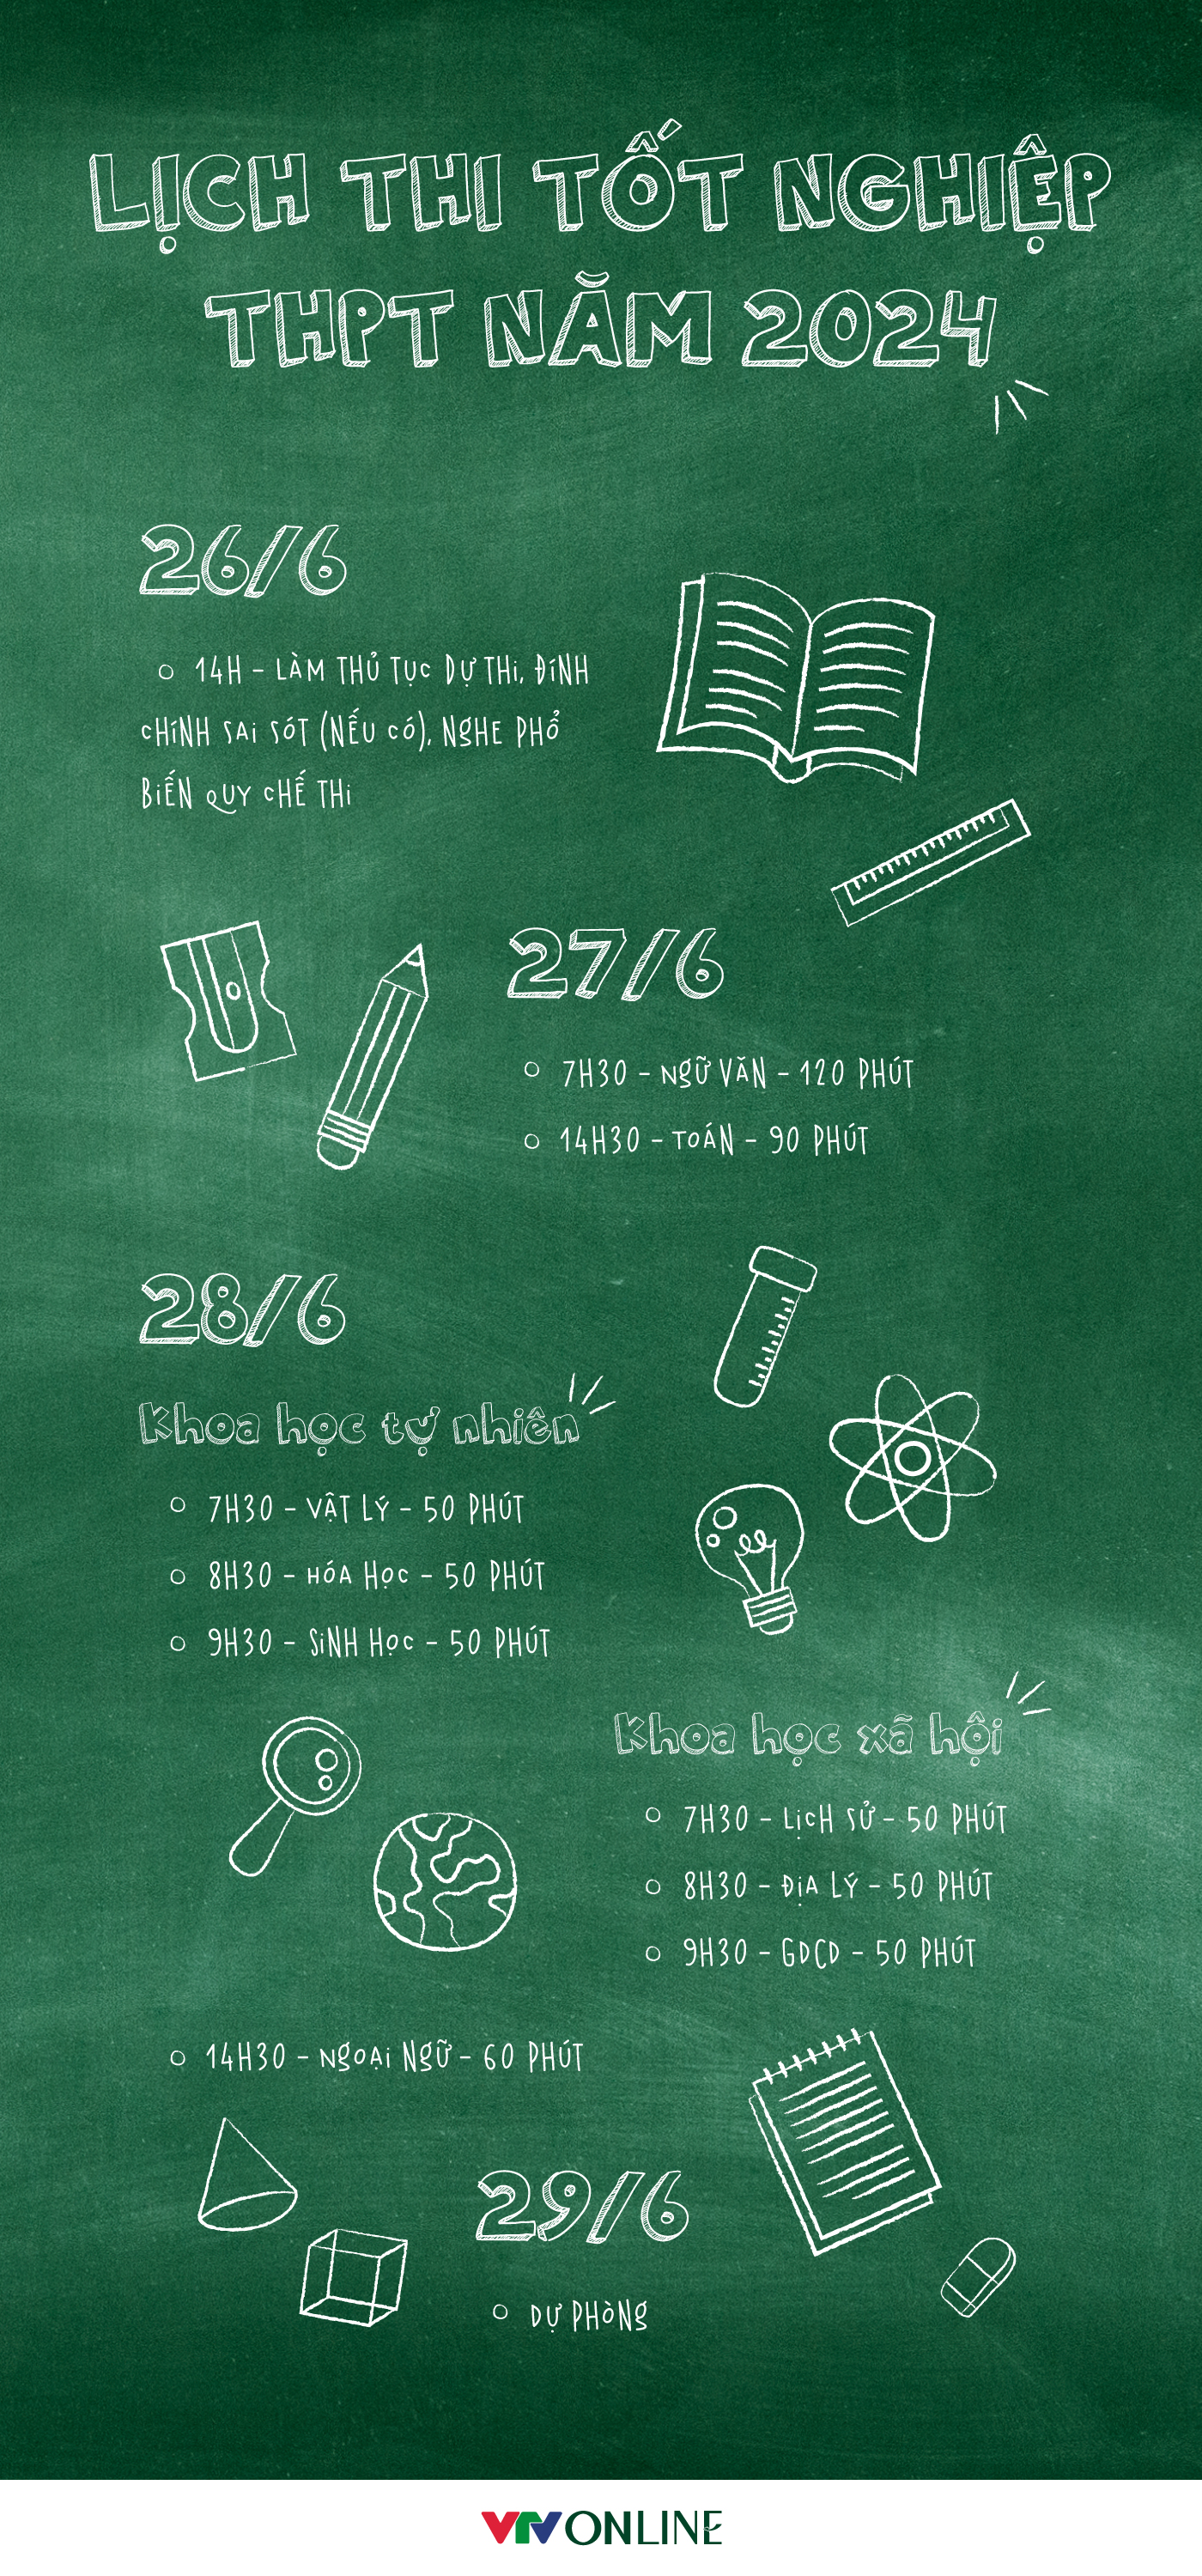 LỊCH THI TỐT NGHIỆP
THPT NĂM 2024
26/6
14H - LÀM THỦ TỤC DỰ THI, ĐÍNH
CHÍNH SAI SÓT (NẾU CÓ), NGHE PHỔ
BIẾN QUY CHẾ THI
27/6
7H30 - NGỮ VĂN - 120 PHÚT
14H30 - TOÁN - 90 PHÚT
28/6
Khoa học tự nhiên
7H30 - VẬT LÝ - 50 PHÚT
8H30 - HÓA HỌC - 50 PHÚT
9H30 - SINH HỌC - 50 PHÚT
Khoa học xã hội
7H30 - LỊCH SỬ - 50 PHÚT
8H30 - ĐỊA LÝ - 50 PHÚT
9H30 - GDCD - 50 PHÚT
14H30 - NGOẠI NGỮ - 60 PHÚT
29/6
DỰ PHÒNG
VTV ONLINE